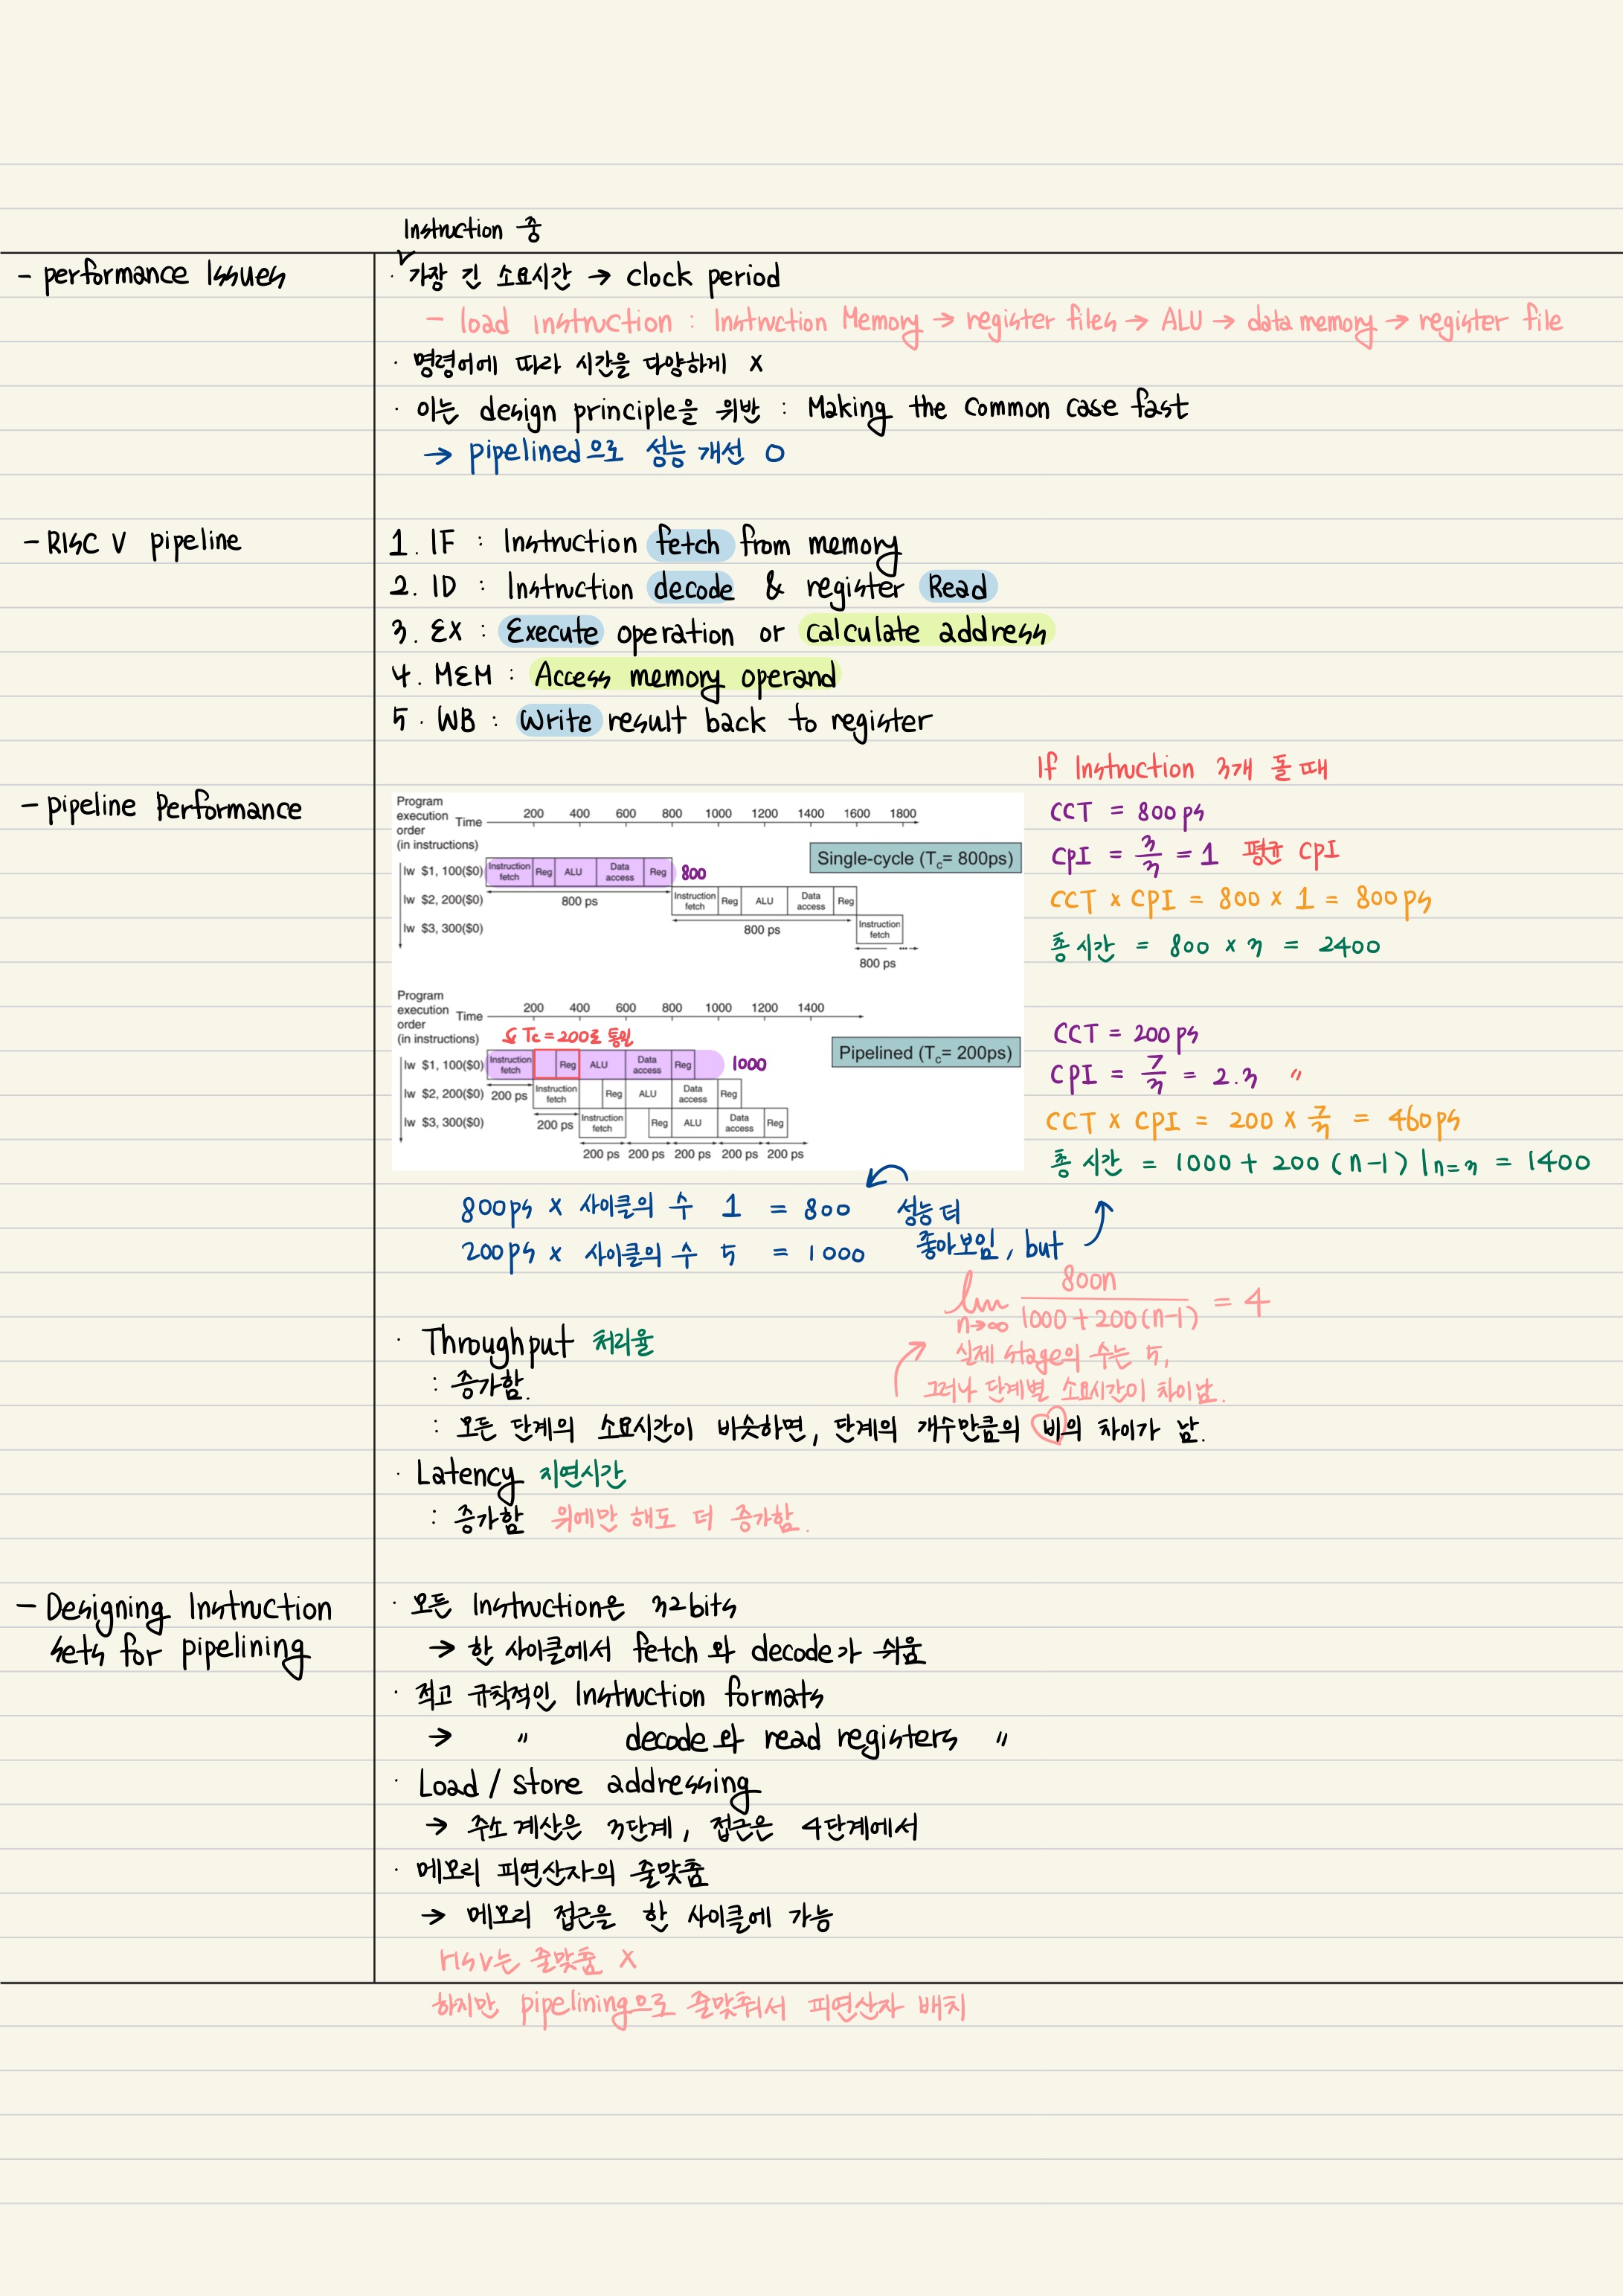 Instruction 중
- performance Issues
· 가장 긴 소요시간 → clock period
- load instruction : Instruction Memory → register files → ALU → data memory → register file
· 명령어에 따라 시간을 다양하게 X
· 이는 design principle을 위반 : Making the Common case fast
→ pipelined으로 성능 개선 O
- RISC V pipeline
1. IF : Instruction fetch from memory
2. ID : Instruction decode & register Read
3. EX : Execute operation or calculate address
4. MEM : Access memory operand
5. WB : Write result back to register
- pipeline Performance
Program
execution
order
(in instructions)
Time 200 400 600 800 1000 1200 1400 1600 1800
Single-cycle (Tc= 800ps)
lw $1, 100($0) Instruction fetch Reg ALU Data access Reg 800
lw $2, 200($0) 800 ps Instruction fetch Reg ALU Data access Reg
lw $3, 300($0) 800 ps Instruction fetch
800 ps
Program
execution
order
(in instructions)
Time 200 400 600 800 1000 1200 1400
Tc = 200로 통일
Pipelined (Tc= 200ps)
lw $1, 100($0) Instruction fetch Reg ALU Data access Reg 1000
lw $2, 200($0) 200 ps Instruction fetch Reg ALU Data access Reg
lw $3, 300($0) 200 ps Instruction fetch Reg ALU Data access Reg
200 ps 200 ps 200 ps 200 ps 200 ps
If Instruction 3개 돌 때
CCT = 800ps
CPI = 3/3 = 1 평균 CPI
CCT x CPI = 800 x 1 = 800ps
총 시간 = 800 x 3 = 2400
CCT = 200ps
CPI = 7/3 = 2.3 〃
CCT x CPI = 200 x 7/3 = 460ps
총 시간 = 1000 + 200 (n-1) |n=3 = 1400
800ps x 사이클의 수 1 = 800
200ps x 사이클의 수 5 = 1000
성능 더
좋아보임, but
lim n→∞ 800n / 1000 + 200(n-1) = 4
실제 stage의 수는 5,
그러나 단계별 소요시간이 차이남.
· Throughput 처리율
: 증가함.
: 모든 단계의 소요시간이 비슷하면, 단계의 개수만큼의 비의 차이가 남.
· Latency 지연시간
: 증가함 위에만 해도 더 증가함.
- Designing Instruction
sets for pipelining
· 모든 Instruction은 32bits
→ 한 사이클에서 fetch와 decode가 쉬움
· 적고 규칙적인 Instruction formats
→ 〃 decode와 read registers 〃
· Load / store addressing
→ 주소 계산은 3단계, 접근은 4단계에서
· 메모리 피연산자의 줄맞춤
→ 메모리 접근을 한 사이클에 가능
risv는 줄맞춤 X
하지만 pipelining으로 줄맞춰서 피연산자 배치